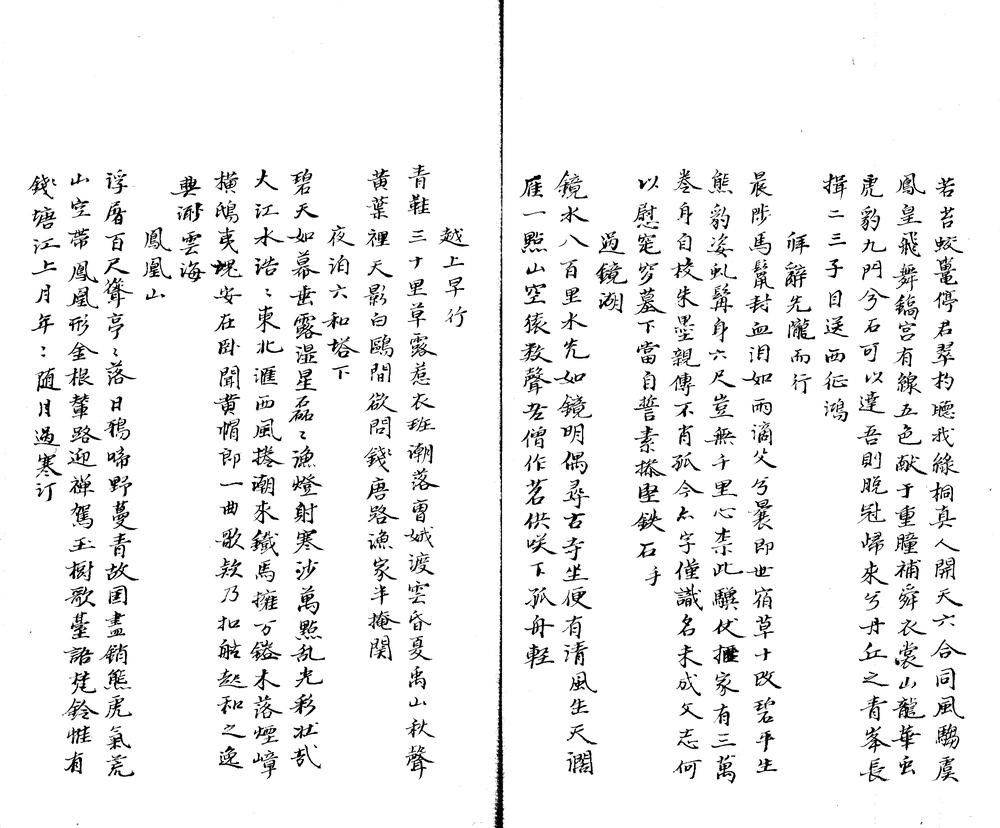 若苔蛟鼉停君翠杓聽我綠桐真人開天六合同風騶虞
鳳皇飛舞鎬宮有線五色献于重瞳補舜衣裳山龍華虫
虎豹九門兮石可以達吾則脫冠歸來兮丹丘之青峯長
揖二三子目送西征鴻
拜辭先隴而行
晨陟馬鬣封血泪如雨滴父兮曩即世宿草十改碧平生
熊豹姿虬髯身六尺豈無千里心柰此驥伏櫪家有三萬
卷身自校朱墨親傳不肖孤今亽字僅識名未成父志何
以慰窀穸墓下當自誓素捲堅鉄石手
過鏡湖
鏡水八百里水光如鏡明偶尋古寺坐便有清風生天濶
雁一點山空猿数聲老僧作茗供咲下孤舟輕
越上早行
青鞋三十里草露惹衣班潮落曹娥渡雲昏夏禹山秋聲
黄葉裡天影白鷗間欲問錢唐路漁家半掩関
夜泊六和塔下
碧天如幕垂露湿星磊〻漁燈射寒沙萬點乱光彩壮哉
大江水浩〻東北滙西風捲潮來鐵馬擁万鎧木落煙嶂
横鴟夷塊安在卧聞黄帽郎一曲歌欸乃扣舷起和之逸
興渺雲海
鳳凰山
浮屠百尺聳亭〻落日鴉啼野蔓青故国盡銷熊虎氣荒
山空帶鳳凰形金根輦路迎禅駕玉樹歌臺語梵鈴惟有
錢塘江上月年〻随月過寒汀